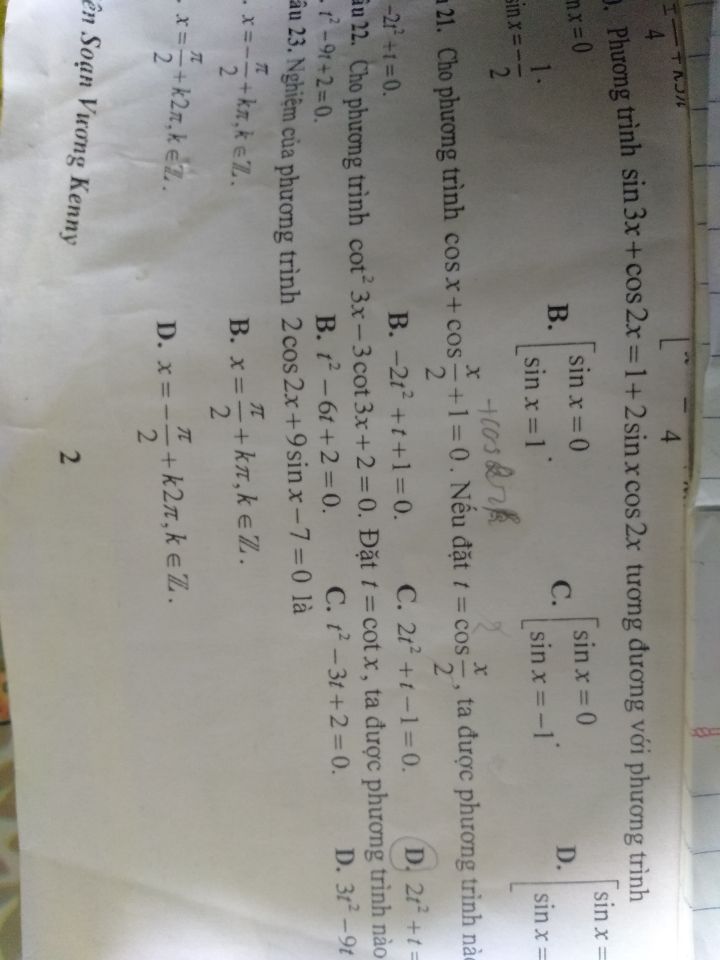 4 + k3π
4
). Phương trình sin 3x + cos 2x = 1 + 2 sin x cos 2x tương đương với phương trình
sin x = 0
sin x = -1/2 .
B. [ sin x = 0
sin x = 1 .
C. [ sin x = 0
sin x = -1 .
D. [ sin x =
sin x =
+cos
21. Cho phương trình cos x + cos x/2 + 1 = 0. Nếu đặt t = cos x/2, ta được phương trình nà
-2t² + t = 0. B. -2t² + t + 1 = 0. C. 2t² + t - 1 = 0. D. 2t² + t =
âu 22. Cho phương trình cot² 3x - 3 cot 3x + 2 = 0. Đặt t = cot x, ta được phương trình nào
. t² - 9t + 2 = 0. B. t² - 6t + 2 = 0. C. t² - 3t + 2 = 0. D. 3t² - 9t
âu 23. Nghiệm của phương trình 2 cos 2x + 9 sin x - 7 = 0 là
. x = -π/2 + kπ, k ∈ ℤ. B. x = π/2 + kπ, k ∈ ℤ.
. x = π/2 + k2π, k ∈ ℤ. D. x = -π/2 + k2π, k ∈ ℤ.
ên Soạn Vương Kenny 2